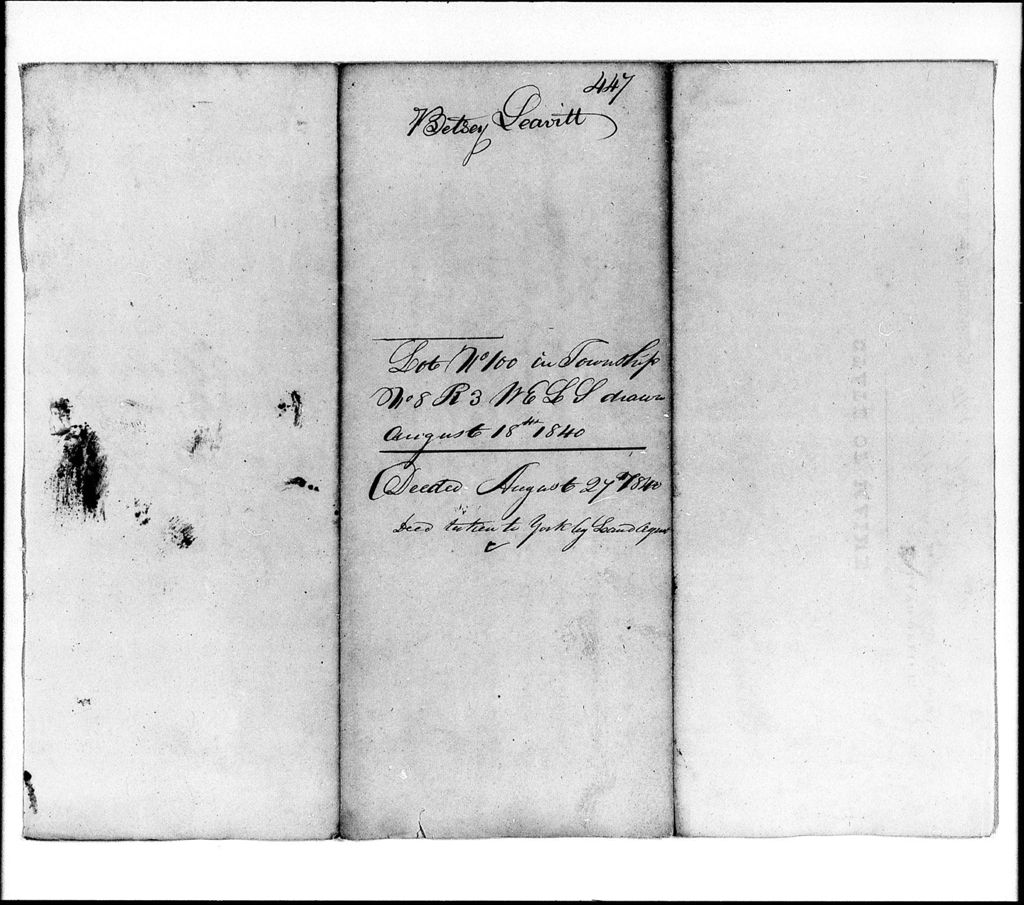 447
Betsey Leavitt
Lot No 100 in Township
No 8 R 3 W E L S drawn
August 18th 1840
Deeded August 27th 1840
Deed taken to York by Land Agent